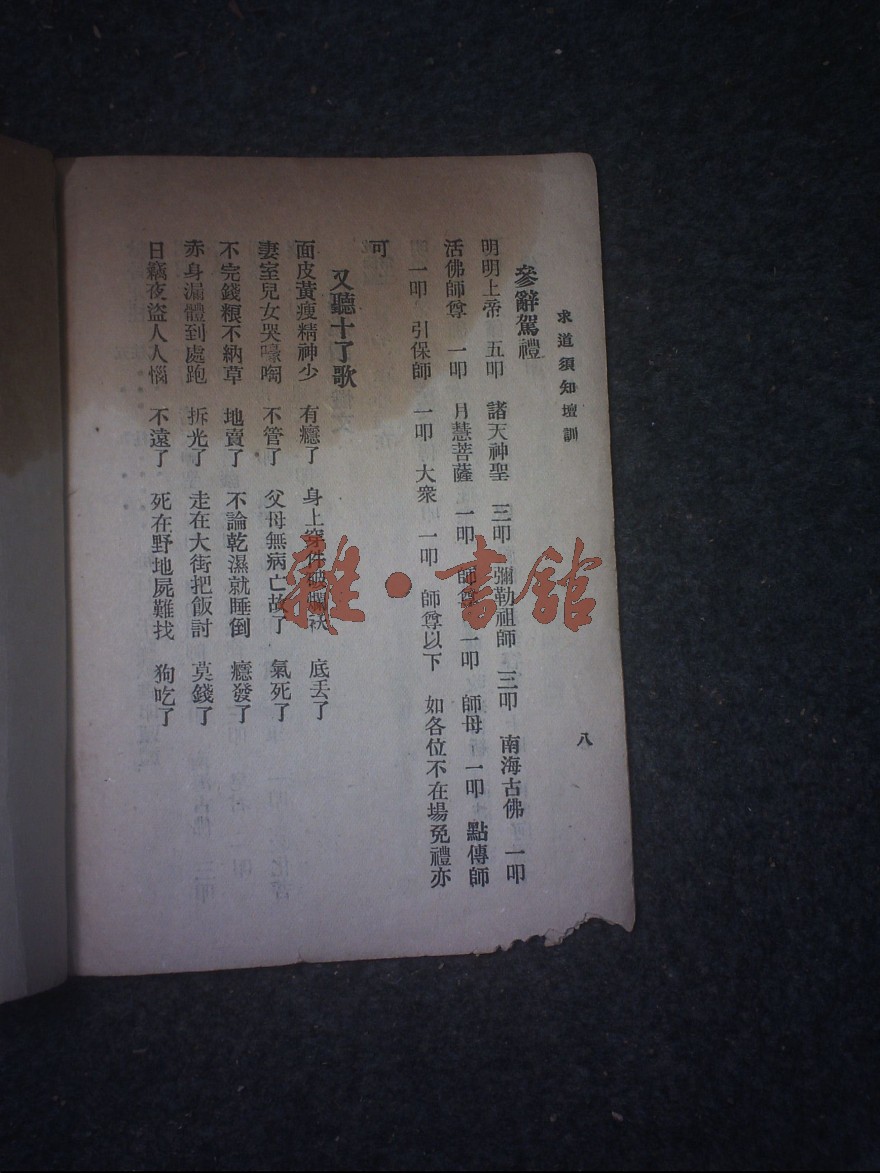 求道須知壇訓 八
參辭駕禮
明明上帝 五叩 諸天神聖 三叩 彌勒祖師 三叩 南海古佛 一叩
活佛師尊 一叩 月慧菩薩 一叩 師尊 一叩 師母 一叩 點傳師
一叩 引保師 一叩 大衆 一叩 師尊以下 如各位不在場免禮亦
可
又聽十了歌
面皮黃瘦精神少 有癮了 身上穿件破爛袄 底丟了
妻室兒女哭嚎啕 不管了 父母無病亡故了 氣死了
不完錢粮不納草 地賣了 不論乾濕就睡倒 癮發了
赤身漏體到處跑 拆光了 走在大街把飯討 莫錢了
日竊夜盜人人惱 不遠了 死在野地屍難找 狗吃了
雜·書館